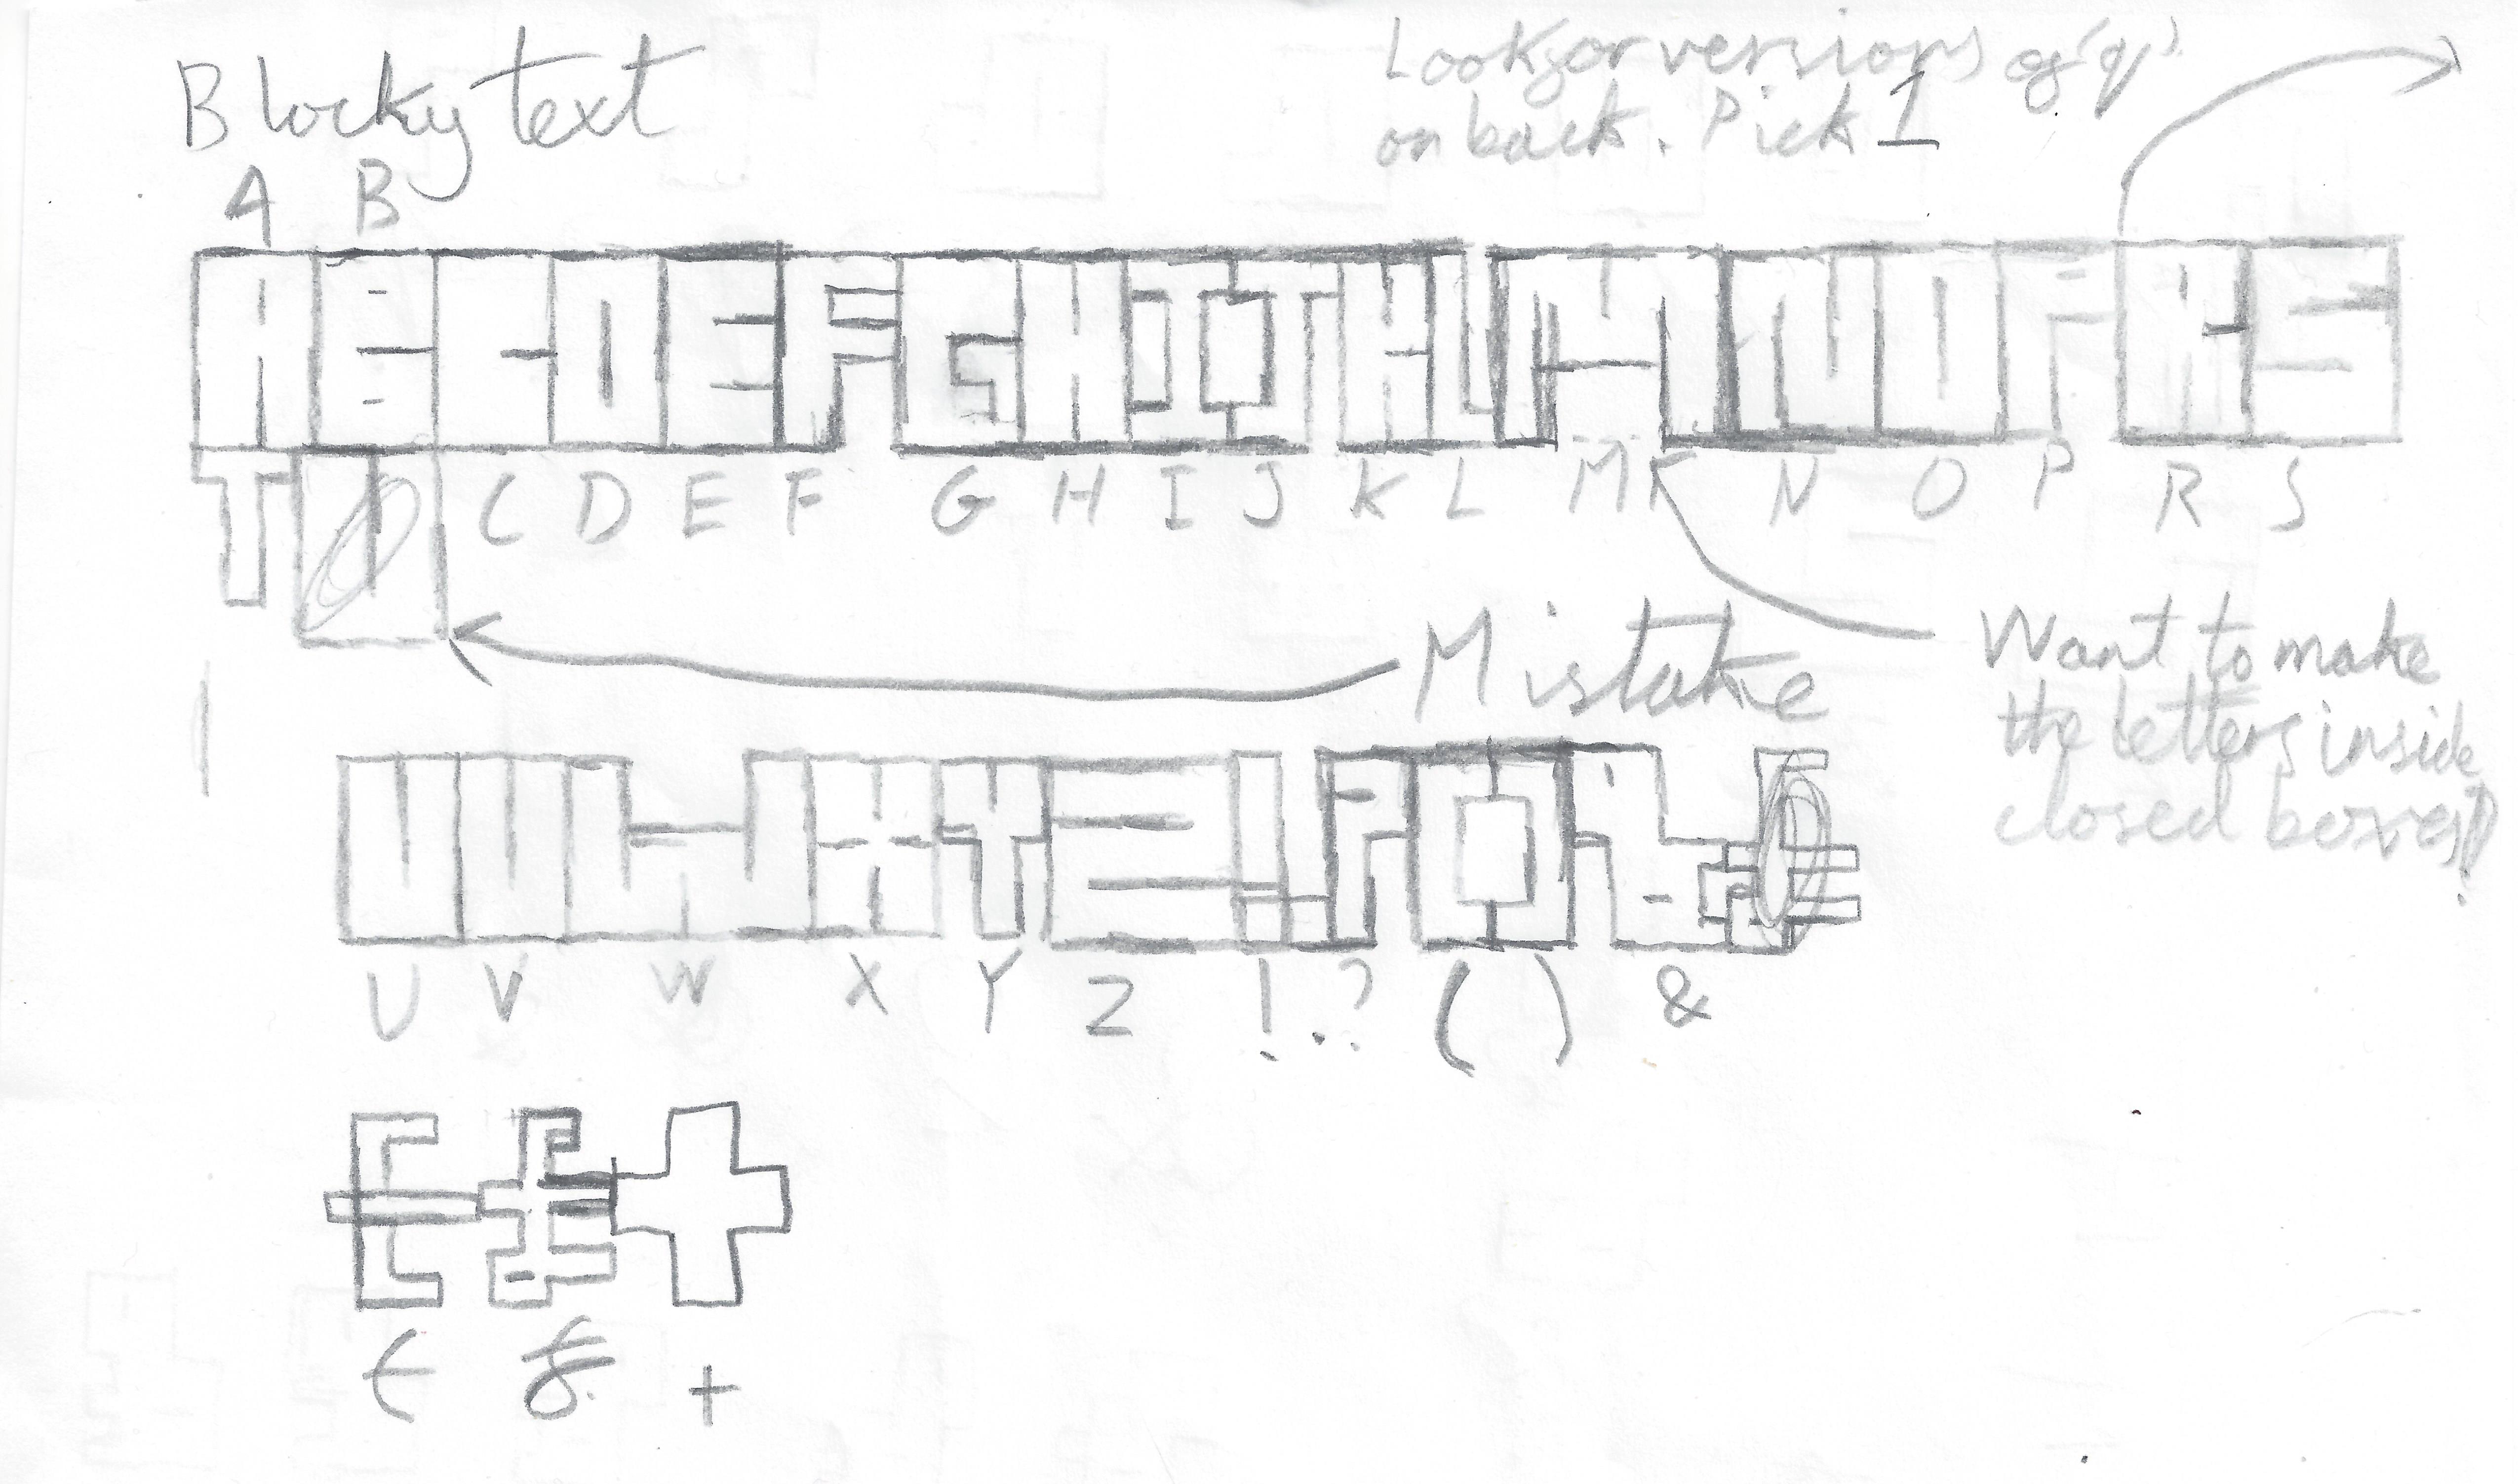 Blocky text
Look for versions of 'q'
on back. Pick 1
A B
ABCDEFGHIJKLMNOPRS
T
C D E F G H I J K L M N O P R S
Mistake
Want to make
the letters inside
closed boxes!
UVWXYZ!.?()&
U V W X Y Z ! . ? ( ) &
€£+
€ £ +